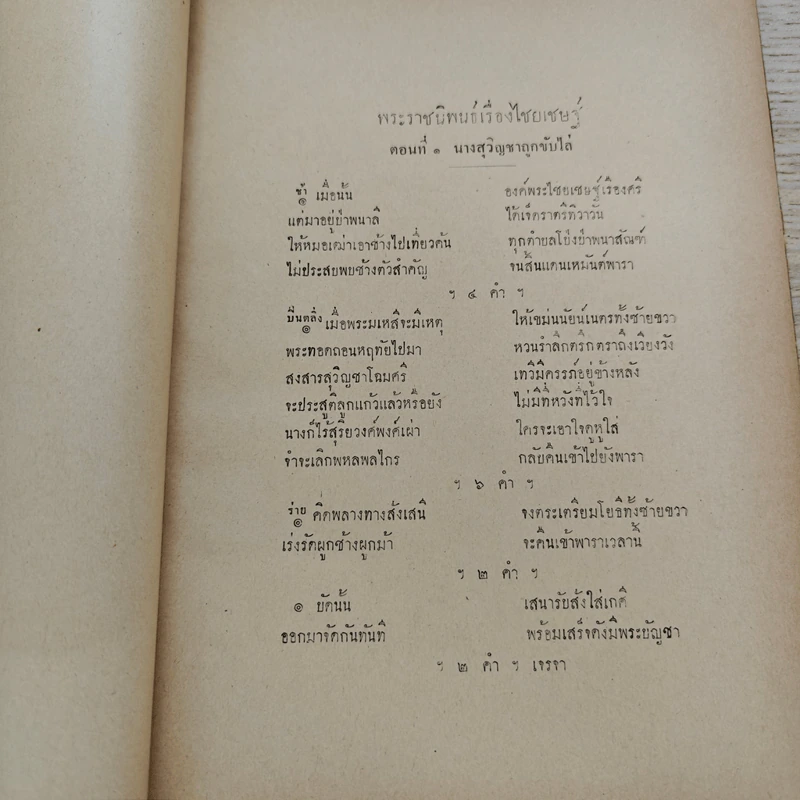 พระราชนิพนธ์เรื่องไชยเชษฐ์
ตอนที่ ๑ นางสุวิญชาถูกขับไล่
ช้า
๏ เมื่อนั้น องค์พระไชยเชษฐ์เรืองศรี
แต่มาอยู่ยำพนาลี ได้เจ็ดราตรีทิวาวัน
ให้หมอเฒ่าเอาช้างไปเที่ยวค้น ทุกตำบลโป่งป่าพนาสัณฑ์
ไม่ประสบพบช้างตัวสำคัญ จนสิ้นแดนเหมันต์พารา
ฯ ๔ คำ ฯ
ปีนตลิ่ง
๏ เมื่อพระมเหสีจะมีเหตุ ให้เขม่นนัยน์เนตรทั้งซ้ายขวา
พระทอดถอนหฤทัยไปมา หวนรำลึกตรึกตราถึงเวียงวัง
สงสารสุวิญชาโฉมศรี เทวีมีครรภ์อยู่ข้างหลัง
จะประสูติลูกแก้วแล้วหรือยัง ไม่มีที่หวังที่ไว้ใจ
นางก็ไร้สุริยวงศ์พงศ์เผ่า ใครจะเอาใจดูหูใส่
จำจะเลิกพหลพลไกร กลับคืนเข้าไปยังพารา
ฯ ๖ คำ ฯ
ร่าย
๏ คิดพลางทางสั่งเสนี จงตระเตรียมโยธีทั้งซ้ายขวา
เร่งรัดผูกช้างผูกม้า จะคืนเข้าพาราเวลานี้
ฯ ๒ คำ ฯ
๏ บัดนั้น เสนารับสั่งใส่เกศี
ออกมาจัดกันทันที พร้อมเสร็จดังมีพระบัญชา
ฯ ๒ คำ ฯ เจรจา